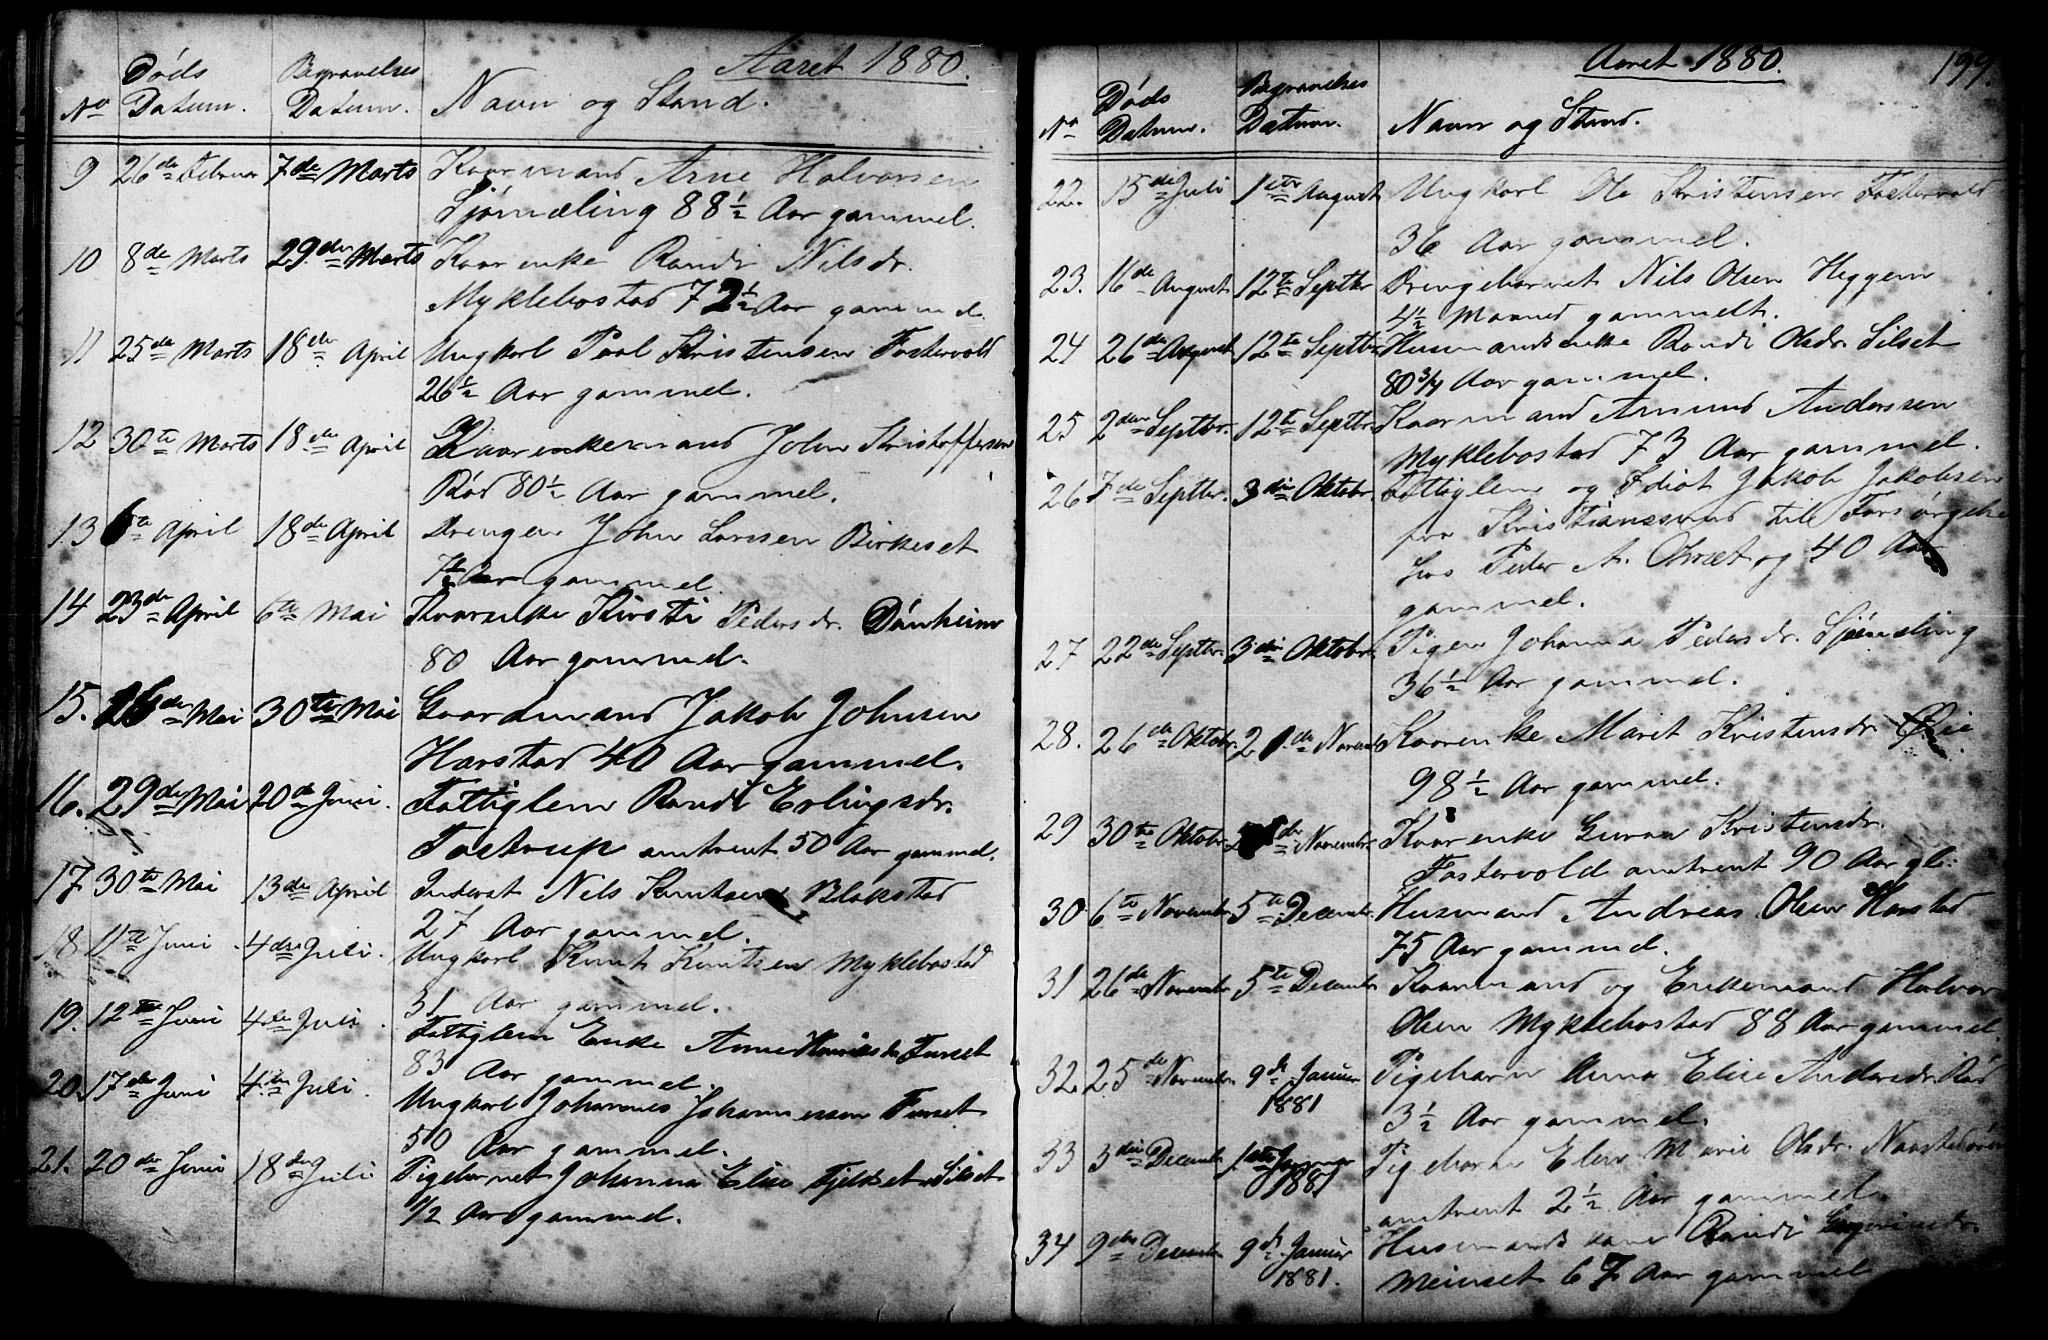 Aaret 1880.
No Døds Datum. Begravelses Datum. Navn og Stand.
9 26de Februar 7de Marts Kaarmand Arne Halvorsen
Sjømæling 88½ Aar gammel.
10 8de Marts 29de Marts Kaarenke Randi Nilsdr.
Myklebostad 72½ Aar gammel.
11 25de Marts 18de April Ungkarl Paal Kristensen Fostervold
26½ Aar gammel.
12 30te Marts 18de April Kaarenkemand John Kristoffersen
Rød 80½ Aar gammel.
13 6te April 18de April Drengen John Larsen Birkeset
Aar gammel.
14 23de April 6te Mai Kaarenke Kirsti Pedersdr. Dønheim
80 Aar gammel.
15. 26de Mai 30te Mai Gaardmand Jakob Johnsen
Harstad 40 Aar gammel.
16. 29de Mai 20de Juni. Fattiglem Randi Erlingsdr.
Fostrup omtrent 50 Aar gammel.
17 30te Mai 13de April Inderst Nils Knutsen Blakstad
27 Aar gammel.
18 11te Juni 4de Juli. Ungkarl Knut Knutsen Myklebostad
31 Aar gammel.
19. 12te Juni 4de Juli. Fattiglem Enke Anne Furset
83 Aar gammel.
20. 17de Juni 4de Juli. Ungkarl Johannes Johannessen Furset
50 Aar gammel.
21. 20de Juni 18de Juli. Pigebarnet Johanna Elise Fjeldset Silset
1/2 Aar gammel.
Aaret 1880. 199.
No Døds Datum. Begravelses Datum. Navn og Stand.
22. 15de Juli 1ste August Ungkarl Ole Kristensen Fostervold
36 Aar gammel.
23. 16de August 12te Septbr Drengebarnet Nils Olsen Heggem
4½ Maaned gammelt.
24 26de August 12te Septbr. Husmandsenke Randi Olsdr. Silset
80 3/4 Aar gammel.
25 2den Septbr. 12te Septbr. Kaarmand Amund Anderssen
Myklebostad 73 Aar gammel.
26 7de Septbr. 3die Oktobr. Fattiglem og Idiot Jakob Jakobsen
fra Kristianssund til Forsørgelse
hos Peder A. Ohrset og 40 Aar
gammel.
27 22de Septbr. 3die Oktobr. Pigen Johanna Pedersdr. Sjømæling
36½ Aar gammel.
28. 26de Oktobr. 21de Novembr Kaarenke Marit Kristensdr. Øie
98½ Aar gammel.
29 30te Oktobr. de Novembr. Kaarenke Guroe Kristensdr.
Fostervold omtrent 90 Aar gl.
30 6te Novembr. 5te Decembr. Husmand Andreas Olsen Harstad
75 Aar gammel.
31 26de Novembr 5te Decembr Kaarmand og Enkemand Halvor
Olsen Myklebostad 88 Aar gammel.
32. 25de Novembr. 9de Januar 1881 Pigebarn Anna Elise Andersdr. Rød
3½ Aar gammel.
33 3die Decembr 1ste Januar 1881 Pigebarn Elen Marie Olsdr.
omtrent 2½ Aar gammel.
34 9de Decembr 9de Januar 1881. Husmandskone Randi
Meinset 67 Aar gammel